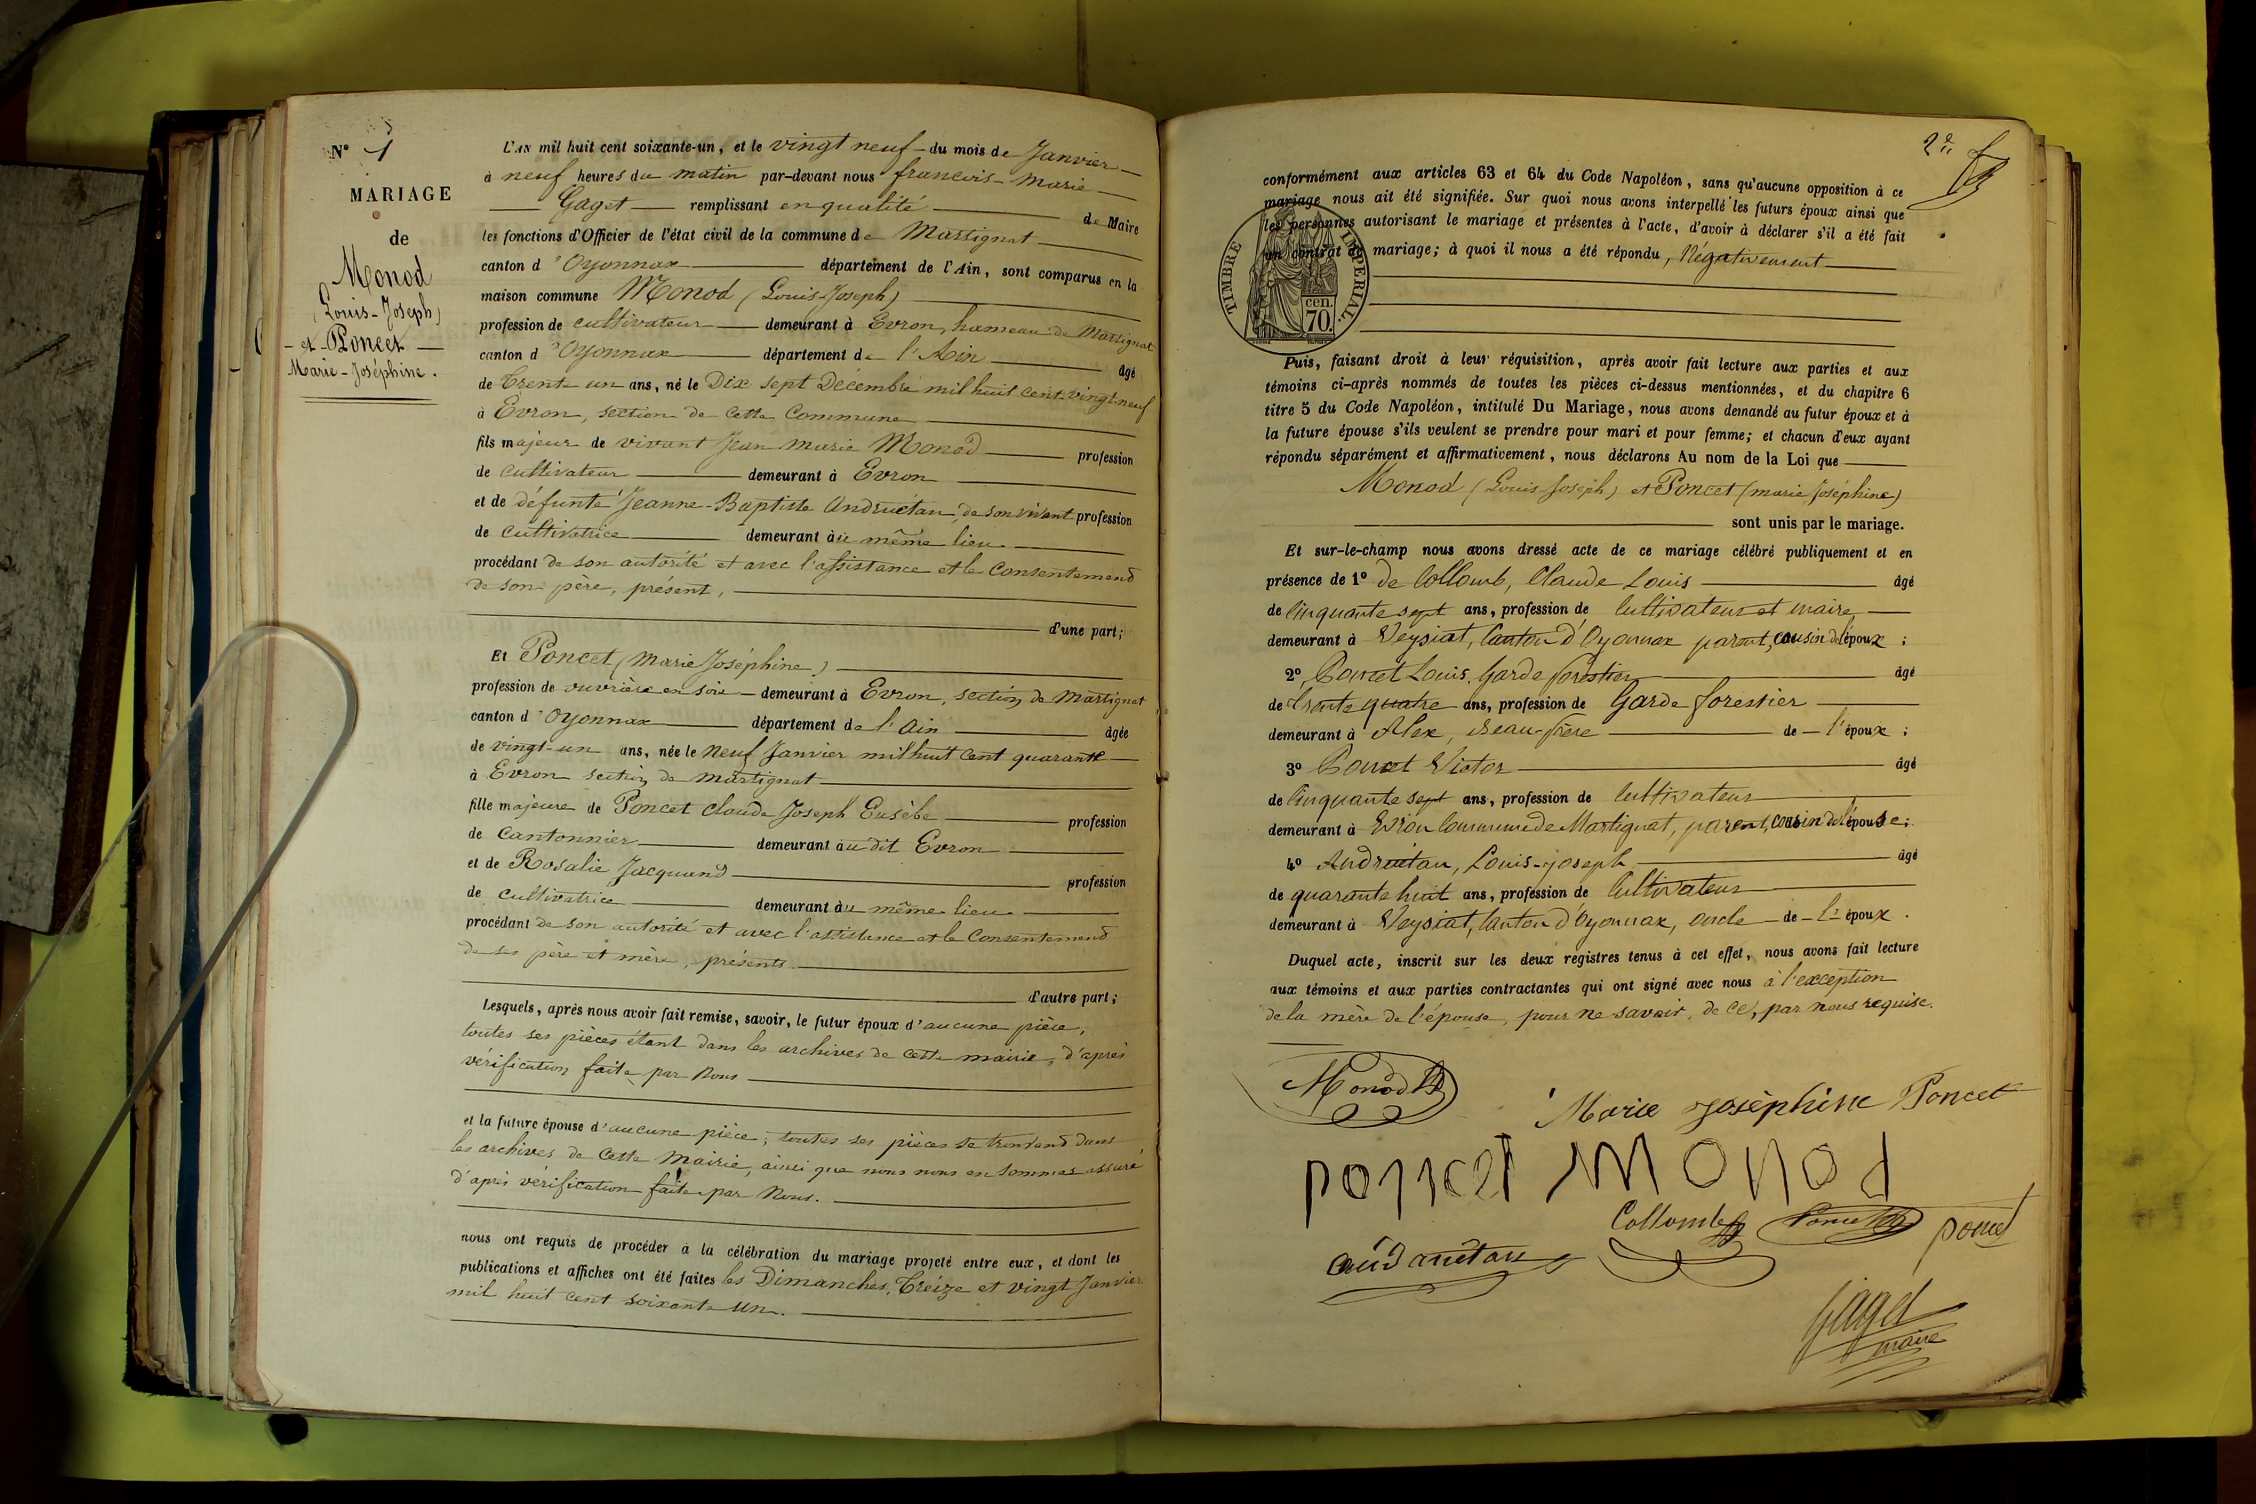 N° 1
MARIAGE
de
Monod
(Louis-Joseph)
et Poncet
Marie-Joséphine.
L'AN mil huit cent soixante-un, et le vingt neuf du mois de Janvier
à neuf heures du matin par-devant nous françois-Marie
Gaget remplissant en qualité de Maire
les fonctions d'Officier de l'état civil de la commune de Martignat
canton d'Oyonnax département de l'Ain, sont comparus en la
maison commune Monod (Louis-Joseph)
profession de cultivateur demeurant à Evron, hameau de Martignat
canton d'Oyonnax département de l'Ain âgé
de Trente un ans, né le Dix sept Décembre mil huit cent vingt-neuf
à Evron, section de cette Commune
fils majeur de vivant Jean Marie Monod profession
de cultivateur demeurant à Evron
et de défunte Jeanne-Baptiste Andruétan, de son vivant profession
de cultivatrice demeurant au même lieu
procédant de son autorité et avec l'assistance et le Consentement
de son père, présent,
d'une part;
Et Poncet (Marie Joséphine)
profession de ouvrière en soie demeurant à Evron, section de Martignat
canton d'Oyonnax département de l'Ain âgée
de vingt-un ans, née le neuf Janvier mil huit cent quarante
à Evron section de Martignat
fille majeure de Poncet Claude Joseph Eusèbe profession
de Cantonnier demeurant au dit Evron
et de Rosalie Jacquand profession
de cultivatrice demeurant au même lieu
procédant de son autorité et avec l'assistance et le Consentement
de ses père et mère, présents
d'autre part;
Lesquels, après nous avoir fait remise, savoir, le futur époux d'aucune pièce,
toutes ses pièces étant dans les archives de cette mairie, d'après
vérification faite par nous
et la future épouse d'aucune pièce; toutes ses pièces se trouvant dans
les archives de cette Mairie, ainsi que nous nous en sommes assuré
d'après vérification faite par Nous.
nous ont requis de procéder à la célébration du mariage projeté entre eux, et dont les
publications et affiches ont été faites les Dimanches, Treize et vingt Janvier
mil huit cent soixante un.
2e
conformément aux articles 63 et 64 du Code Napoléon, sans qu'aucune opposition à ce
mariage nous ait été signifiée. Sur quoi nous avons interpellé les futurs époux ainsi que
les personnes autorisant le mariage et présentes à l'acte, d'avoir à déclarer s'il a été fait
un contrat de mariage; à quoi il nous a été répondu, Négativement
TIMBRE IMPERIAL.
cen.
70.
Puis, faisant droit à leur réquisition, après avoir fait lecture aux parties et aux
témoins ci-après nommés de toutes les pièces ci-dessus mentionnées, et du chapitre 6
titre 5 du Code Napoléon, intitulé Du Mariage, nous avons demandé au futur époux et à
la future épouse s'ils veulent se prendre pour mari et pour femme; et chacun d'eux ayant
répondu séparément et affirmativement, nous déclarons Au nom de la Loi que
Monod (Louis Joseph) et Poncet (marie Joséphine)
sont unis par le mariage.
Et sur-le-champ nous avons dressé acte de ce mariage célébré publiquement et en
présence de 1° de Collomb, Claude Louis âgé
de Cinquante sept ans, profession de Cultivateur et maire
demeurant à Veysiat, Canton d'Oyonnax parent, cousin de l'époux;
2° Poncet Louis, Garde forestier âgé
de trente quatre ans, profession de Garde forestier
demeurant à Alex, Beau-frère de l'époux;
3° Poncet Victor âgé
de Cinquante sept ans, profession de Cultivateur
demeurant à Evron Commune de Martignat, parent, cousin de l'épouse;
4° Andruétan, Louis-joseph âgé
de quarante huit ans, profession de Cultivateur
demeurant à Veysiat, Canton d'Oyonnax, oncle de l'époux.
Duquel acte, inscrit sur les deux registres tenus à cet effet, nous avons fait lecture
aux témoins et aux parties contractantes qui ont signé avec nous à l'exception
de la mère de l'épouse, pour ne savoir, de ce, par nous requise.
Monod
Marie Joséphine Poncet
poncet Monod
Collomb Poncet poncet
andruétan
Gaget
maire